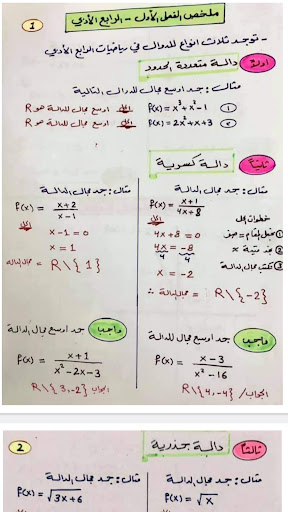 1
ملخص الفصل الأول - الرابع الأدبي
- توجد ثلاث انواع للدوال في رياضيات الرابع الأدبي
اولاً دالة متعددة الحدود
مثال: جد اوسع مجال للدوال التالية
① f(x) = x³ + x² - 1 الحل اوسع مجال للدالة هو R
② f(x) = 2x² + x + 3 الحل اوسع مجال للدالة هو R
ثانياً دالة كسرية
مثال: جد مجال الدالة
f(x) = x+1 / 4x+8
خطوات الحل
الحل
① نجعل المقام = صفر
4x + 8 = 0
② نجد قيمة x
4x/4 = -8/4
③ نكتب مجال الدالة
x = -2
∴ مجال الدالة = R\{-2}
مثال: جد مجال الدالة
f(x) = x+2 / x-1
الحل
x - 1 = 0
x = 1
مجال الدالة = R\{1}
واجب جد اوسع مجال للدالة
f(x) = x-3 / x²-16
الجواب / R\{4,-4}
واجب جد اوسع مجال الدالة
f(x) = x+1 / x²-2x-3
الجواب R\{3,-2}
2
ثالثاً دالة جذرية
مثال: جد مجال الدالة
f(x) = √x
مثال: جد مجال الدالة
f(x) = √3x+6